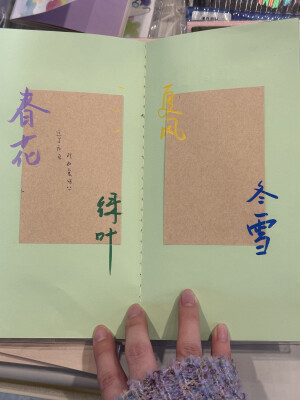 春花
绿叶
夏风
冬雪